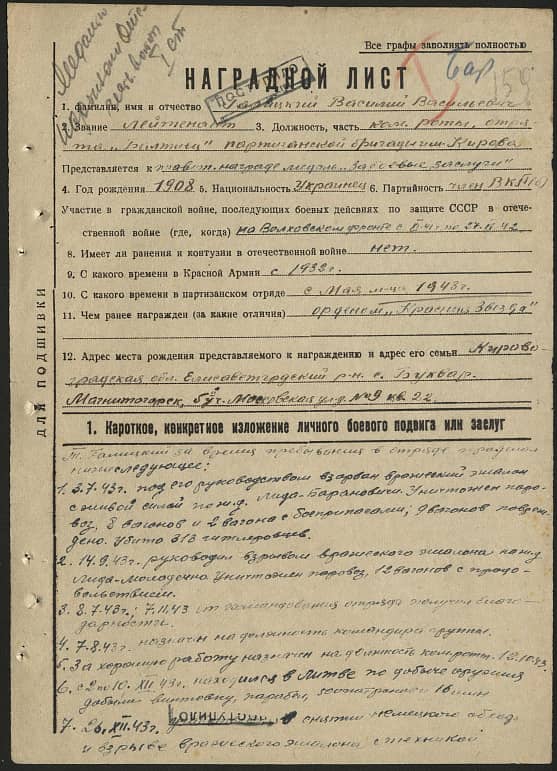 Медалью
Партизану Отеч.
войны
I ст
Все графы заполнять полностью
Бар
159
ПОСТУПИЛО
НАГРАДНОЙ ЛИСТ
1. фамилия, имя и отчество Галицкий Василий Васильевич
2. Звание Лейтенант 3. Должность, часть ком. роты, отря-
да „Балтиец" партизанской бригады им. Кирова
Представляется к правит. награде медаль „За боевые заслуги"
4. Год рождения 1908 5. Национальность Украинец 6. Партийность член ВКП(б)
Участие в гражданской войне, последующих боевых действиях по защите СССР в отече-
ственной войне (где, когда) на Волховском фронте с
8. Имет ли ранения и контузии в отечественной войне нет.
9. С какого времени в Красной Армии с 1932г.
10. С какого времени в партизанском отряде с Мая м-ца 1943г.
11. Чем ранее награжден (за какие отличия) орденом „Красная Звезда"
12. Адрес места рождения представляемого к награждению и адрес его семьи Кирово-
градская обл. Елисаветградский р-н с. Буквар.
Магнитогорск, 5 уч. Московская ул. д №9 кв. 22
ДЛЯ ПОДШИВКИ
1. Короткое, конкретное изложение личного боевого подвига или заслуг
Т. Галицкий за время пребывания в отряде проделал
нижеследующее:
1. 3.7.43г. под его руководством взорван вражеский эшалон
с живой силой по ж.д. Лида-Барановичи. Уничтожен паро-
воз, 8 вагонов и 2 вагона с боеприпасами; 9 вагонов повреж-
дено. Убито 313 гитлеровцев.
2. 14.9.43г. руководил взрывом вражеского эшалона на ж.д.
Лида-Молодечно. Уничтожен паровоз, 12 вагонов с продо-
вольствием.
3. 8.7.43г.; 7.11.43 от командования отряда получил благо-
дарности.
4. 7.8.43г. назначен на должность командира группы.
5. За хорошую работу назначен на должность ком. роты 12.10.43.
6. с 2 по 10. XII.43г. находился в Литве по добыче оружия
добыли винтовку, парабел, 16 мин
7. 26.XII.43г. ПОСТУПИЛО снятии немецкого
и взрыве вражеского эшалона с техникой